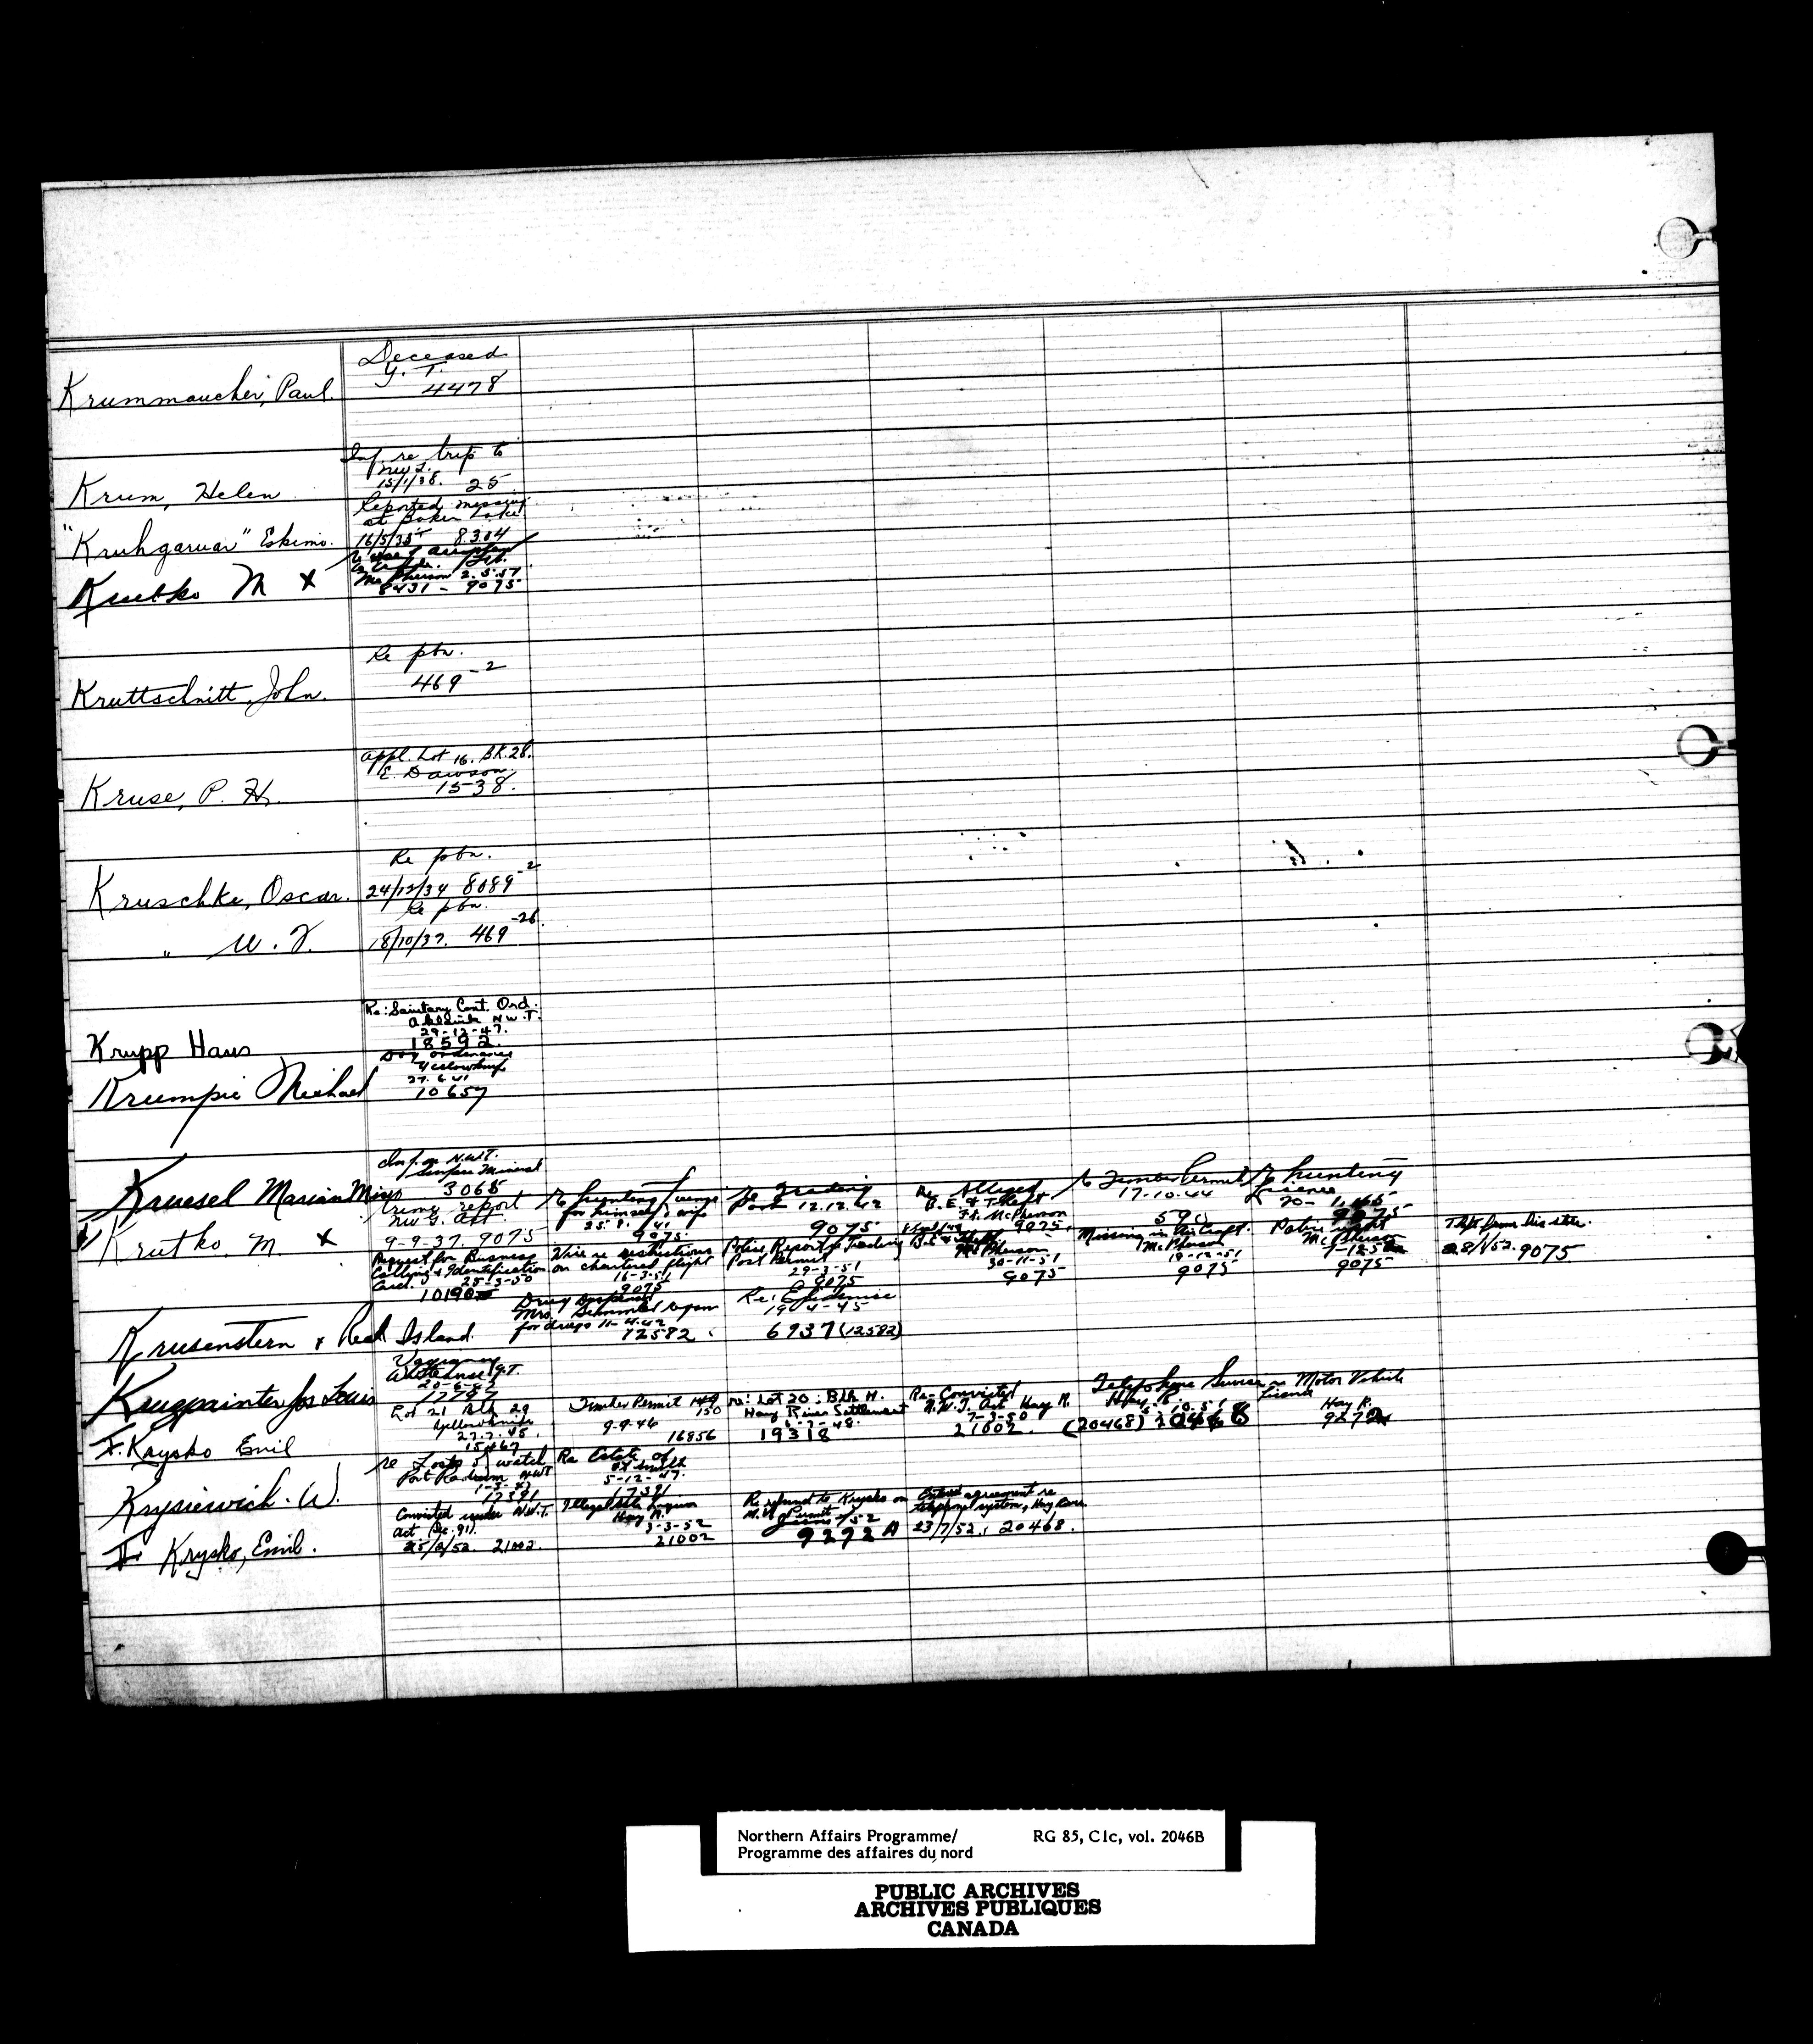 Deceased
Y. T.
4478
Krummaucher, Paul.
Inf. re trip to
N.W.T.
15/1/38. 25
Krum, Helen
Reported missing
at Baker Lake
16/5/35 8304
"Kruhgaruar" Eskimo.
McPherson 2.5.57
8431 - 9075
Krutko M x
Re ptn.
469-2
Kruttschnitt, John.
Appl. Lot 16. Bk. 28.
E. Dawson.
1538.
Kruse, P. H.
Re ptn.
24/12/34 8089-2
Kruschke, Oscar.
Re ptn.
18/10/37. 469-26.
" W. F.
Re: Sanitary Cont. Ord.
Aklavik N.W.T.
29-12-47.
18592.
Krupp Hans
Dog ordinance
Yellowknife
27.6.41
10657
Krumpie Michael
Inf. re N.W.T.
Mineral
3065
Kruesel Marian Miss
Crime report
N.W.T. Act
9-9-37. 9075
Krutko. M x
re hunting license
for himself & wife
25.8.41
9075
re Trading
Post 12.12.42
9075
Re Alleged
B. E. & Theft
Ft. McPherson
9075
re Timber Permit
17-10-44
590
re hunting
license
9075
Request for Business
Calling & Identification
Card. 25-3-50
10190
Wire re restrictions
on chartered flight
16-3-51
9075
Police Report re Trading
Post Permit
29-3-51
9075
McPherson
30-11-51
9075
Missing Air Craft.
McPherson
18-12-51
9075
McPherson
9075
Theft from his store.
28/1/52. 9075
Krusenstern & Read Island.
Drug
Mrs.
for drugs 11-4-42
12582
Re: Epidemic
19-4-45
6937 (12582)
Vagrancy
Whitehorse Y.T.
Krugpainter Jos Louis
Lot 21 Blk 29
Yellowknife
27.7.45.
15467
F. Krysko Emil
Timber Permit 149
150
9-9-46
16856
re: Lot 20: Blk H.
Hay River Settlement
6-7-48.
19318
Re-Convicted
N.W.T. Act Hay R.
7-3-50
21002.
Telephone Service
Hay R.
(20468) 20468
Motor Vehicle
License
Hay R.
9272
re Loss of watch
Port Radium NWT
17391
Krysiewich. W.
Re Estate of
5-12-47.
17391
Convicted under N.W.T.
Act (Sec. 91).
25/2/52. 21002.
F Krysko, Emil.
Illegal Liquor
Hay R.
3-3-52
21002
Re refund to Krysko on
9272 A
agreement re
telephone system, Hay River
23/7/52. 20468.
Northern Affairs Programme/
Programme des affaires du nord
RG 85, C1c, vol. 2046B
PUBLIC ARCHIVES
ARCHIVES PUBLIQUES
CANADA